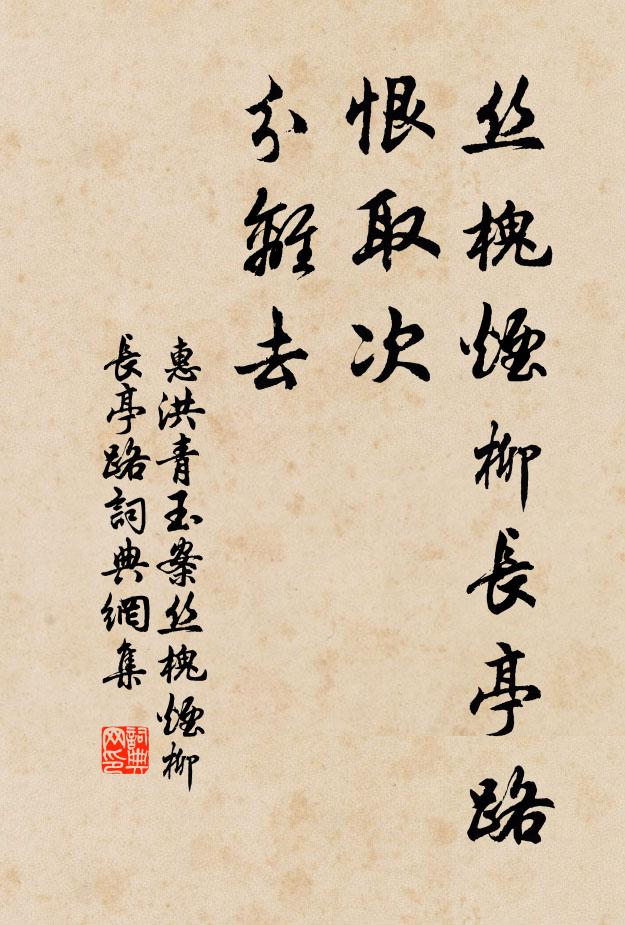 丝槐煙柳長亭路
恨取次
分離去
惠洪青玉案丝槐煙柳
長亭路詞典網集
詞典网印